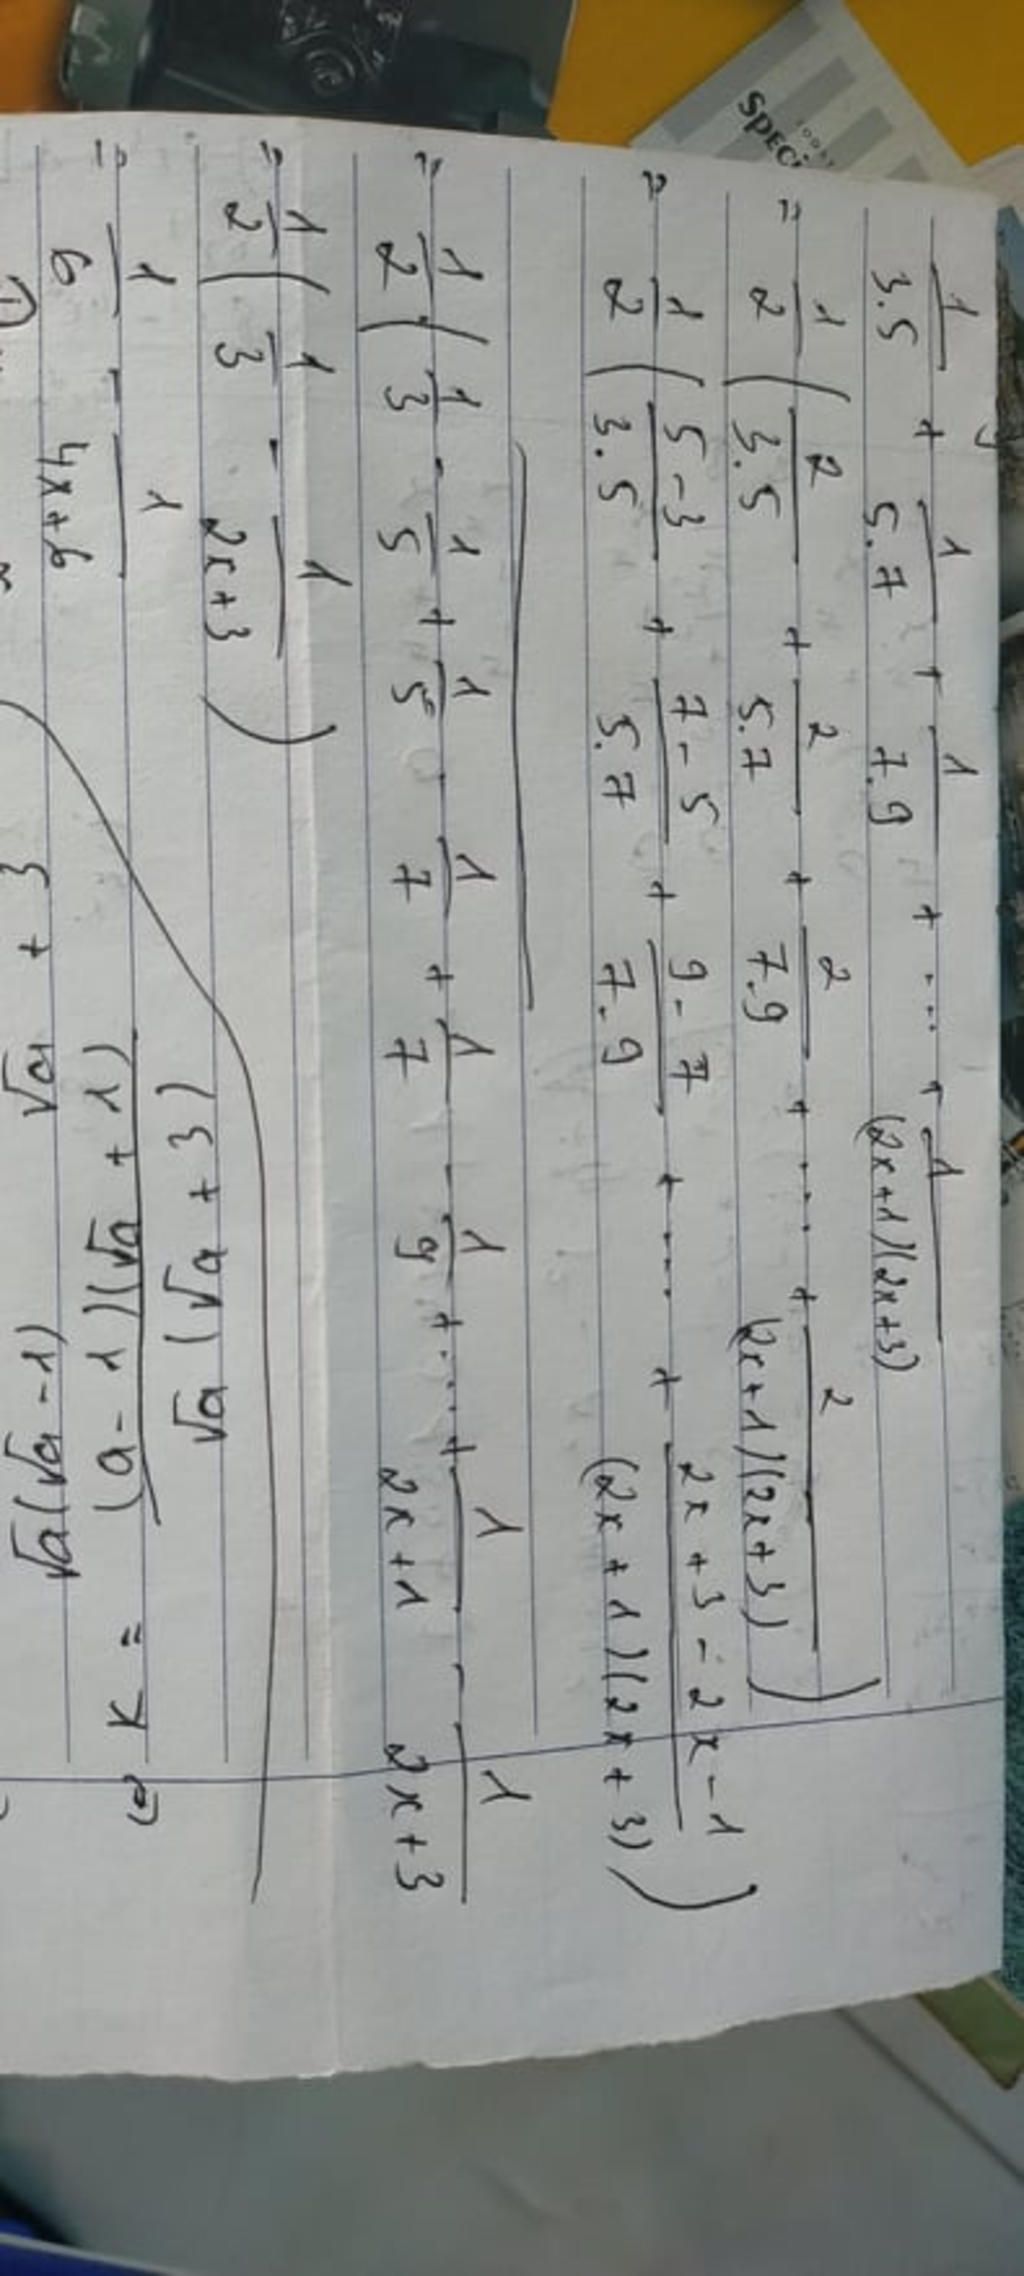 1/3.5 + 1/5.7 + 1/7.9 + ... + 1/(2x+1)(2x+3)
= 1/2 ( 2/3.5 + 2/5.7 + 2/7.9 + ... + 2/(2x+1)(2x+3) )
= 1/2 ( 5-3/3.5 + 7-5/5.7 + 9-7/7.9 + ... + 2x+3-2x-1/(2x+1)(2x+3) )
= 1/2 ( 1/3 - 1/5 + 1/5 - 1/7 + 1/7 - 1/9 + ... + 1/2x+1 - 1/2x+3
= 1/2 ( 1/3 - 1/2x+3 )
= 1/6 - 1/4x+6
√a (√a + 3)
(a-1)(√a + 1)
K =
√a(√a-1)
√a + 3
SPECI